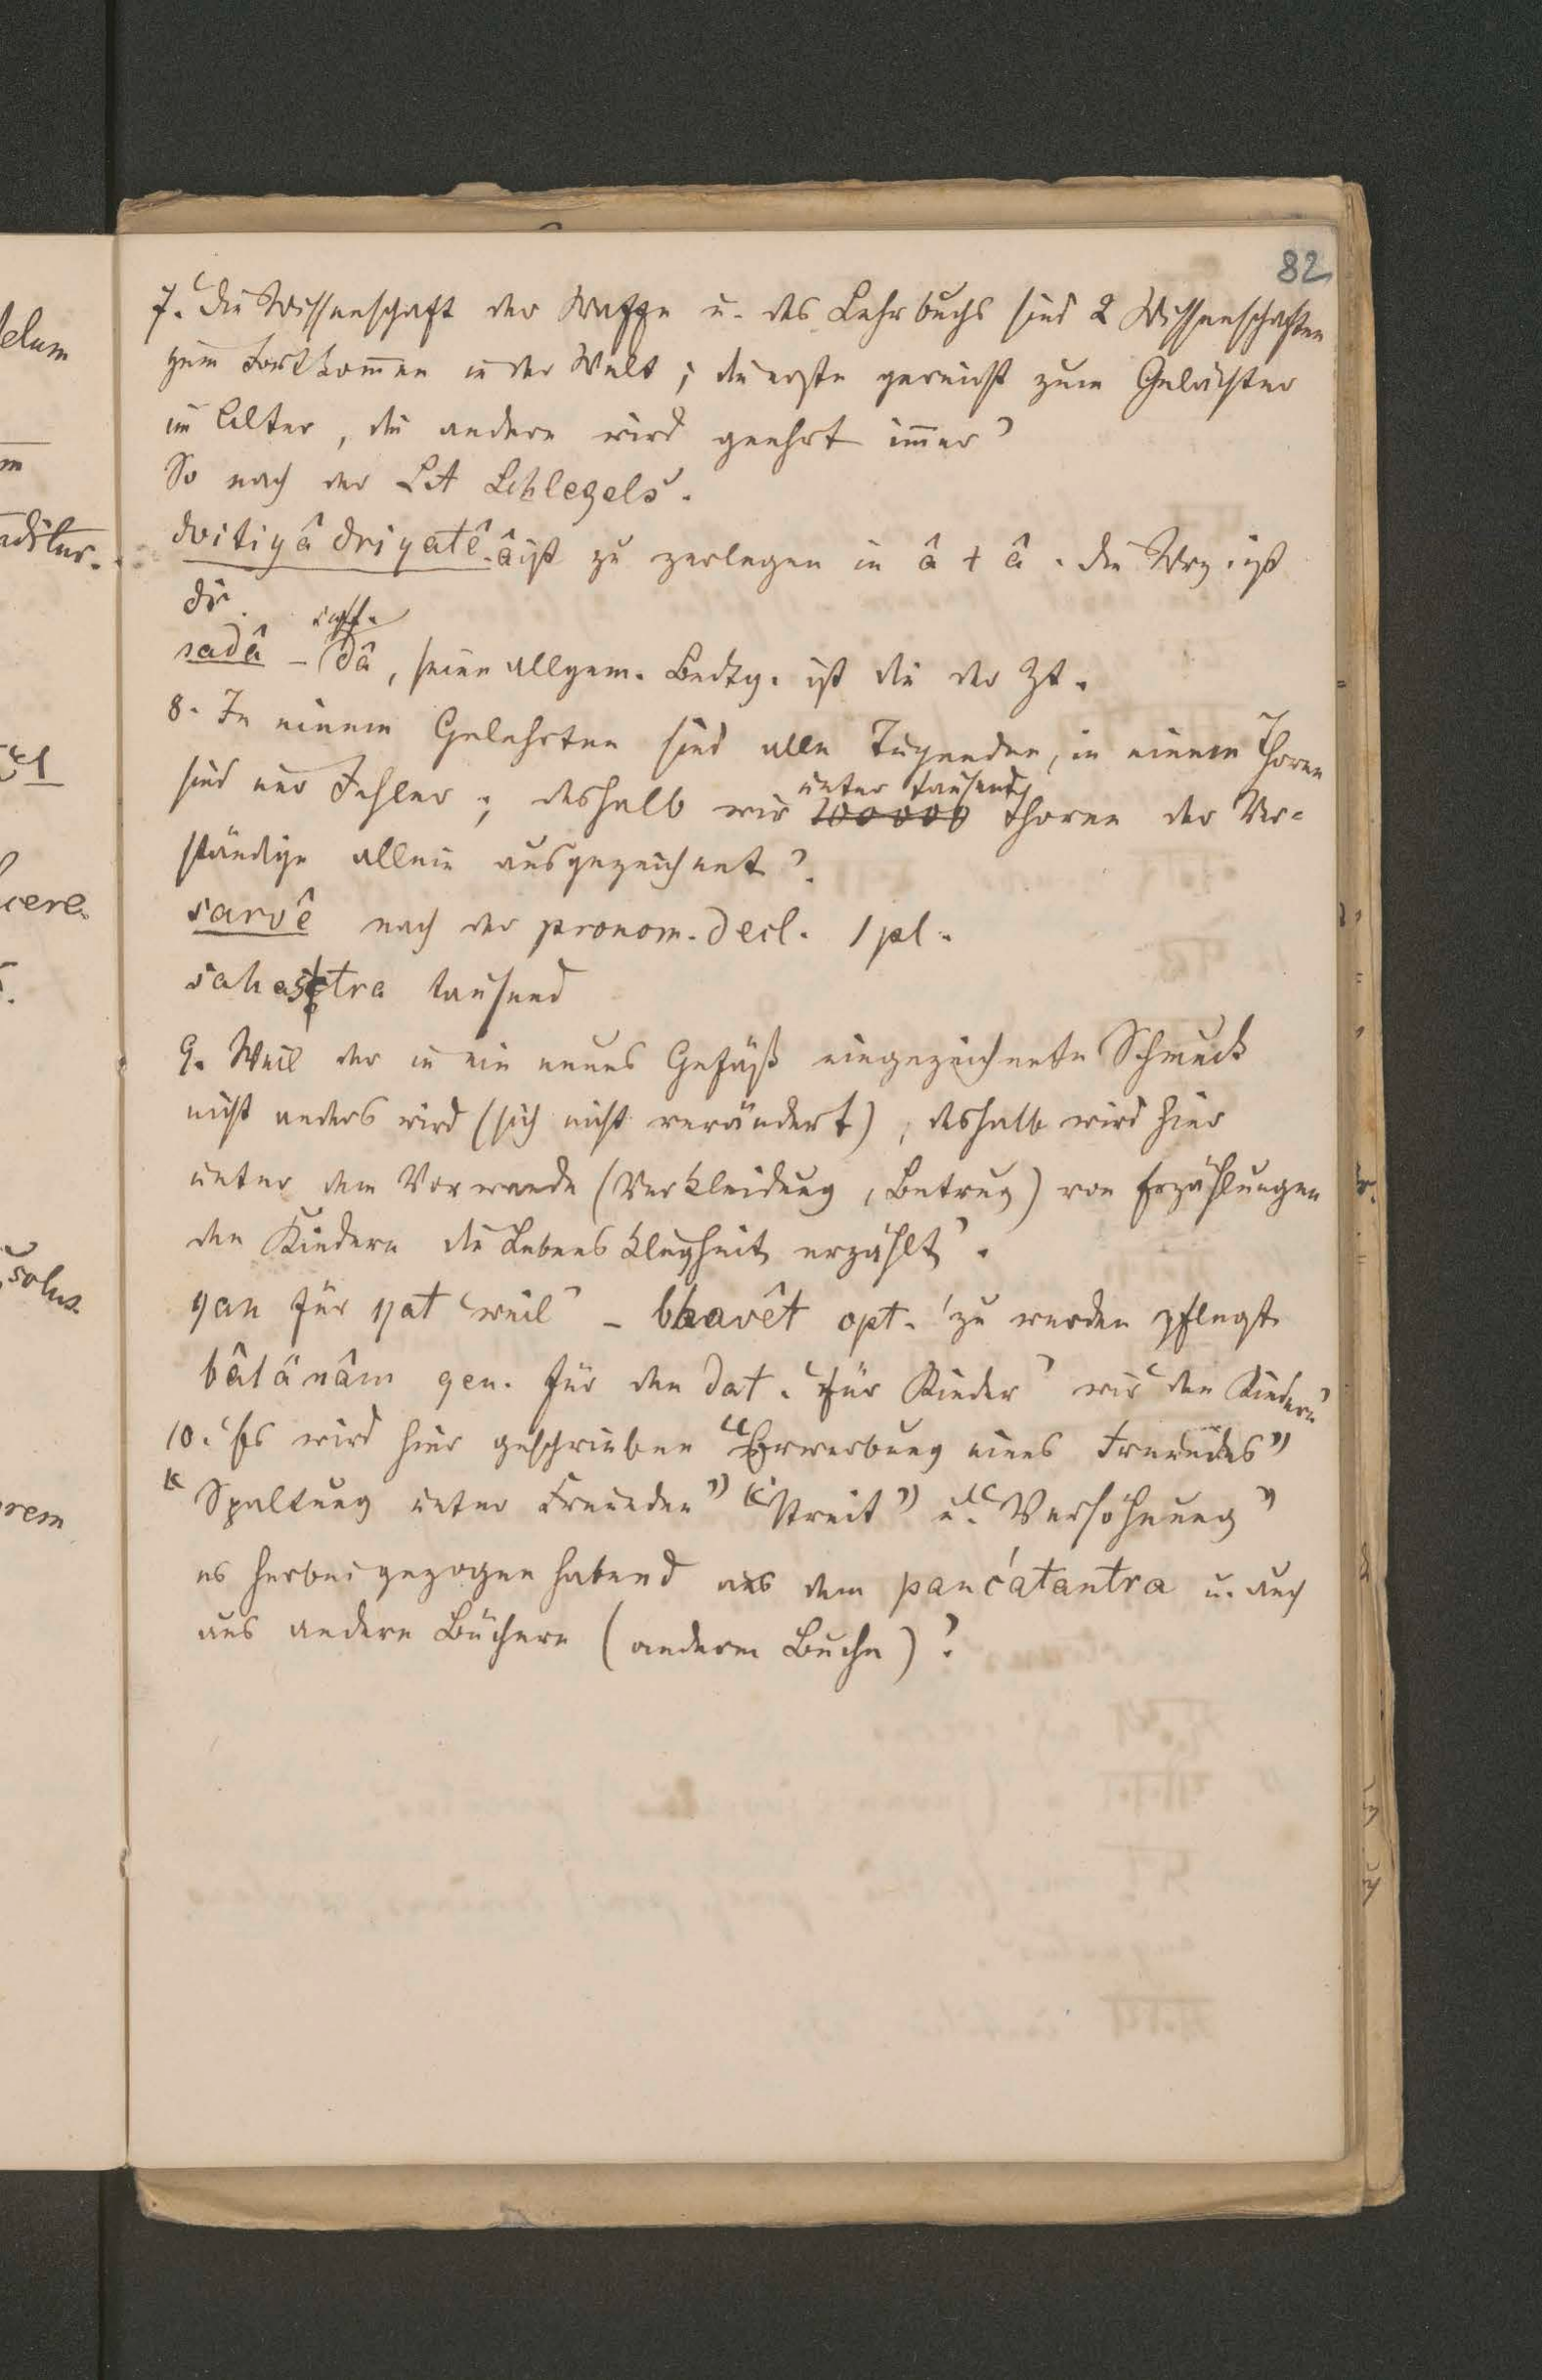 82
7. ‘Die Wissenschaft der Waffe u. des Lehrbuchs sind 2 Wissenschaften
zum Fortkom̅en in der Welt; die erste gereicht zum Gelächter
im Alter, die andere wird geehrt im̅er’
So nach der LA Schlegels.
dvitiyâ driyatê. â ist zu zerlegen in â + â. die Wrz. ist
dr.
suff.
sadâ – dâ, seine allgem. Bedtg. ist die der Zt.
8. In einem Gelehrten sind alle Tugenden, in einem Thoren
unter tausend
sind nur Fehler; deshalb wir 100000 Thoren der Ver-
ständige allein ausgezeichnet’.
sarvê nach der pronom. decl. 1 pl.
sahastra tausend
9. Weil der in ein neues Gefäß eingezeichnete Schmuck
nicht anders wird (sich nicht verändert), deshalb wird hier
unter dem Vorwande (Verkleidung, Betrug) von Erzählungen
den Kindern die Lebensklugheit erzählt’.
yan für yat ‘weil’ – bhavêt opt. ‘zu werden pflegt
bâlânâm gen. für den Dat. ‘für Kinder’ wie ‘den Kindern’
10. ‘Es wird hier geschrieben “Erwerbung eines Freundes”
“Spaltung unter Freunden” “Streit” u. “Versöhnung”
es herbeigezogen habend aus dem pancátantra u. auch
aus andern Büchern (anderem Buche)’.
elum
aditur.
cere.
solus.
rem